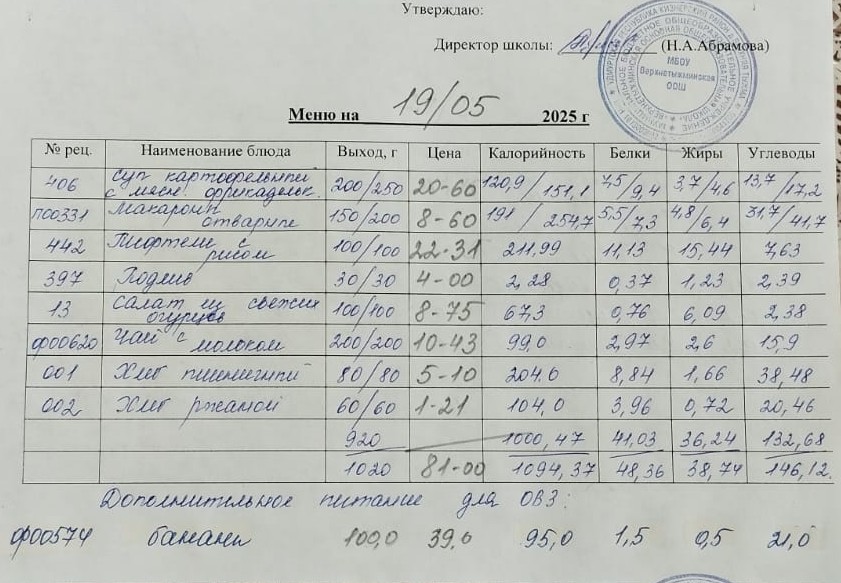 Утверждаю:
Директор школы: (Н.А.Абрамова)
МБОУ
Верхнетыжминская
ООШ
Меню на 19/05 2025 г
№ рец. Наименование блюда Выход, г Цена Калорийность Белки Жиры Углеводы
406 суп картофельный с мясн. фрикадельк. 200/250 20-60 120,9/151,1 7,5/9,4 3,7/4,6 13,7/17,2
п00331 макароны отварные 150/200 8-60 191/254,7 5,5/7,3 4,8/6,4 31,7/41,7
442 Тефтели с рисом 100/100 22-31 211,99 11,13 15,44 7,63
397 Подлив 30/30 4-00 2,28 0,37 1,23 2,39
13 салат из свежих огурцов 100/100 8-75 67,3 0,76 6,09 2,38
ф00620 Чай с молоком 200/200 10-43 99,0 2,97 2,6 15,9
001 Хлеб пшеничный 80/80 5-10 204.0 8,84 1,66 38,48
002 Хлеб ржаной 60/60 1-21 104,0 3,96 0,72 20,46
920 1000,47 41,03 36,24 132,68
1020 81-00 1094,37 48,36 38,74 146,12.
Дополнительное питание для ОВЗ:
ф00574 бананы 100,0 39,0 95,0 1,5 0,5 21,0